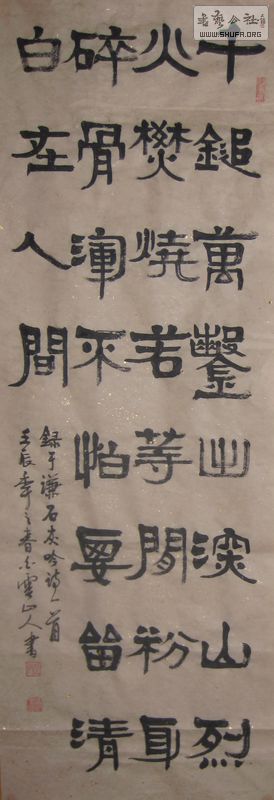 千鎚萬鑿出深山烈
火焚燒若等間粉身
碎骨渾不怕要留清
白在人間
録于謙石灰吟詩一首
壬辰年之春白雲山人書
WWW.SHUFA.ORG